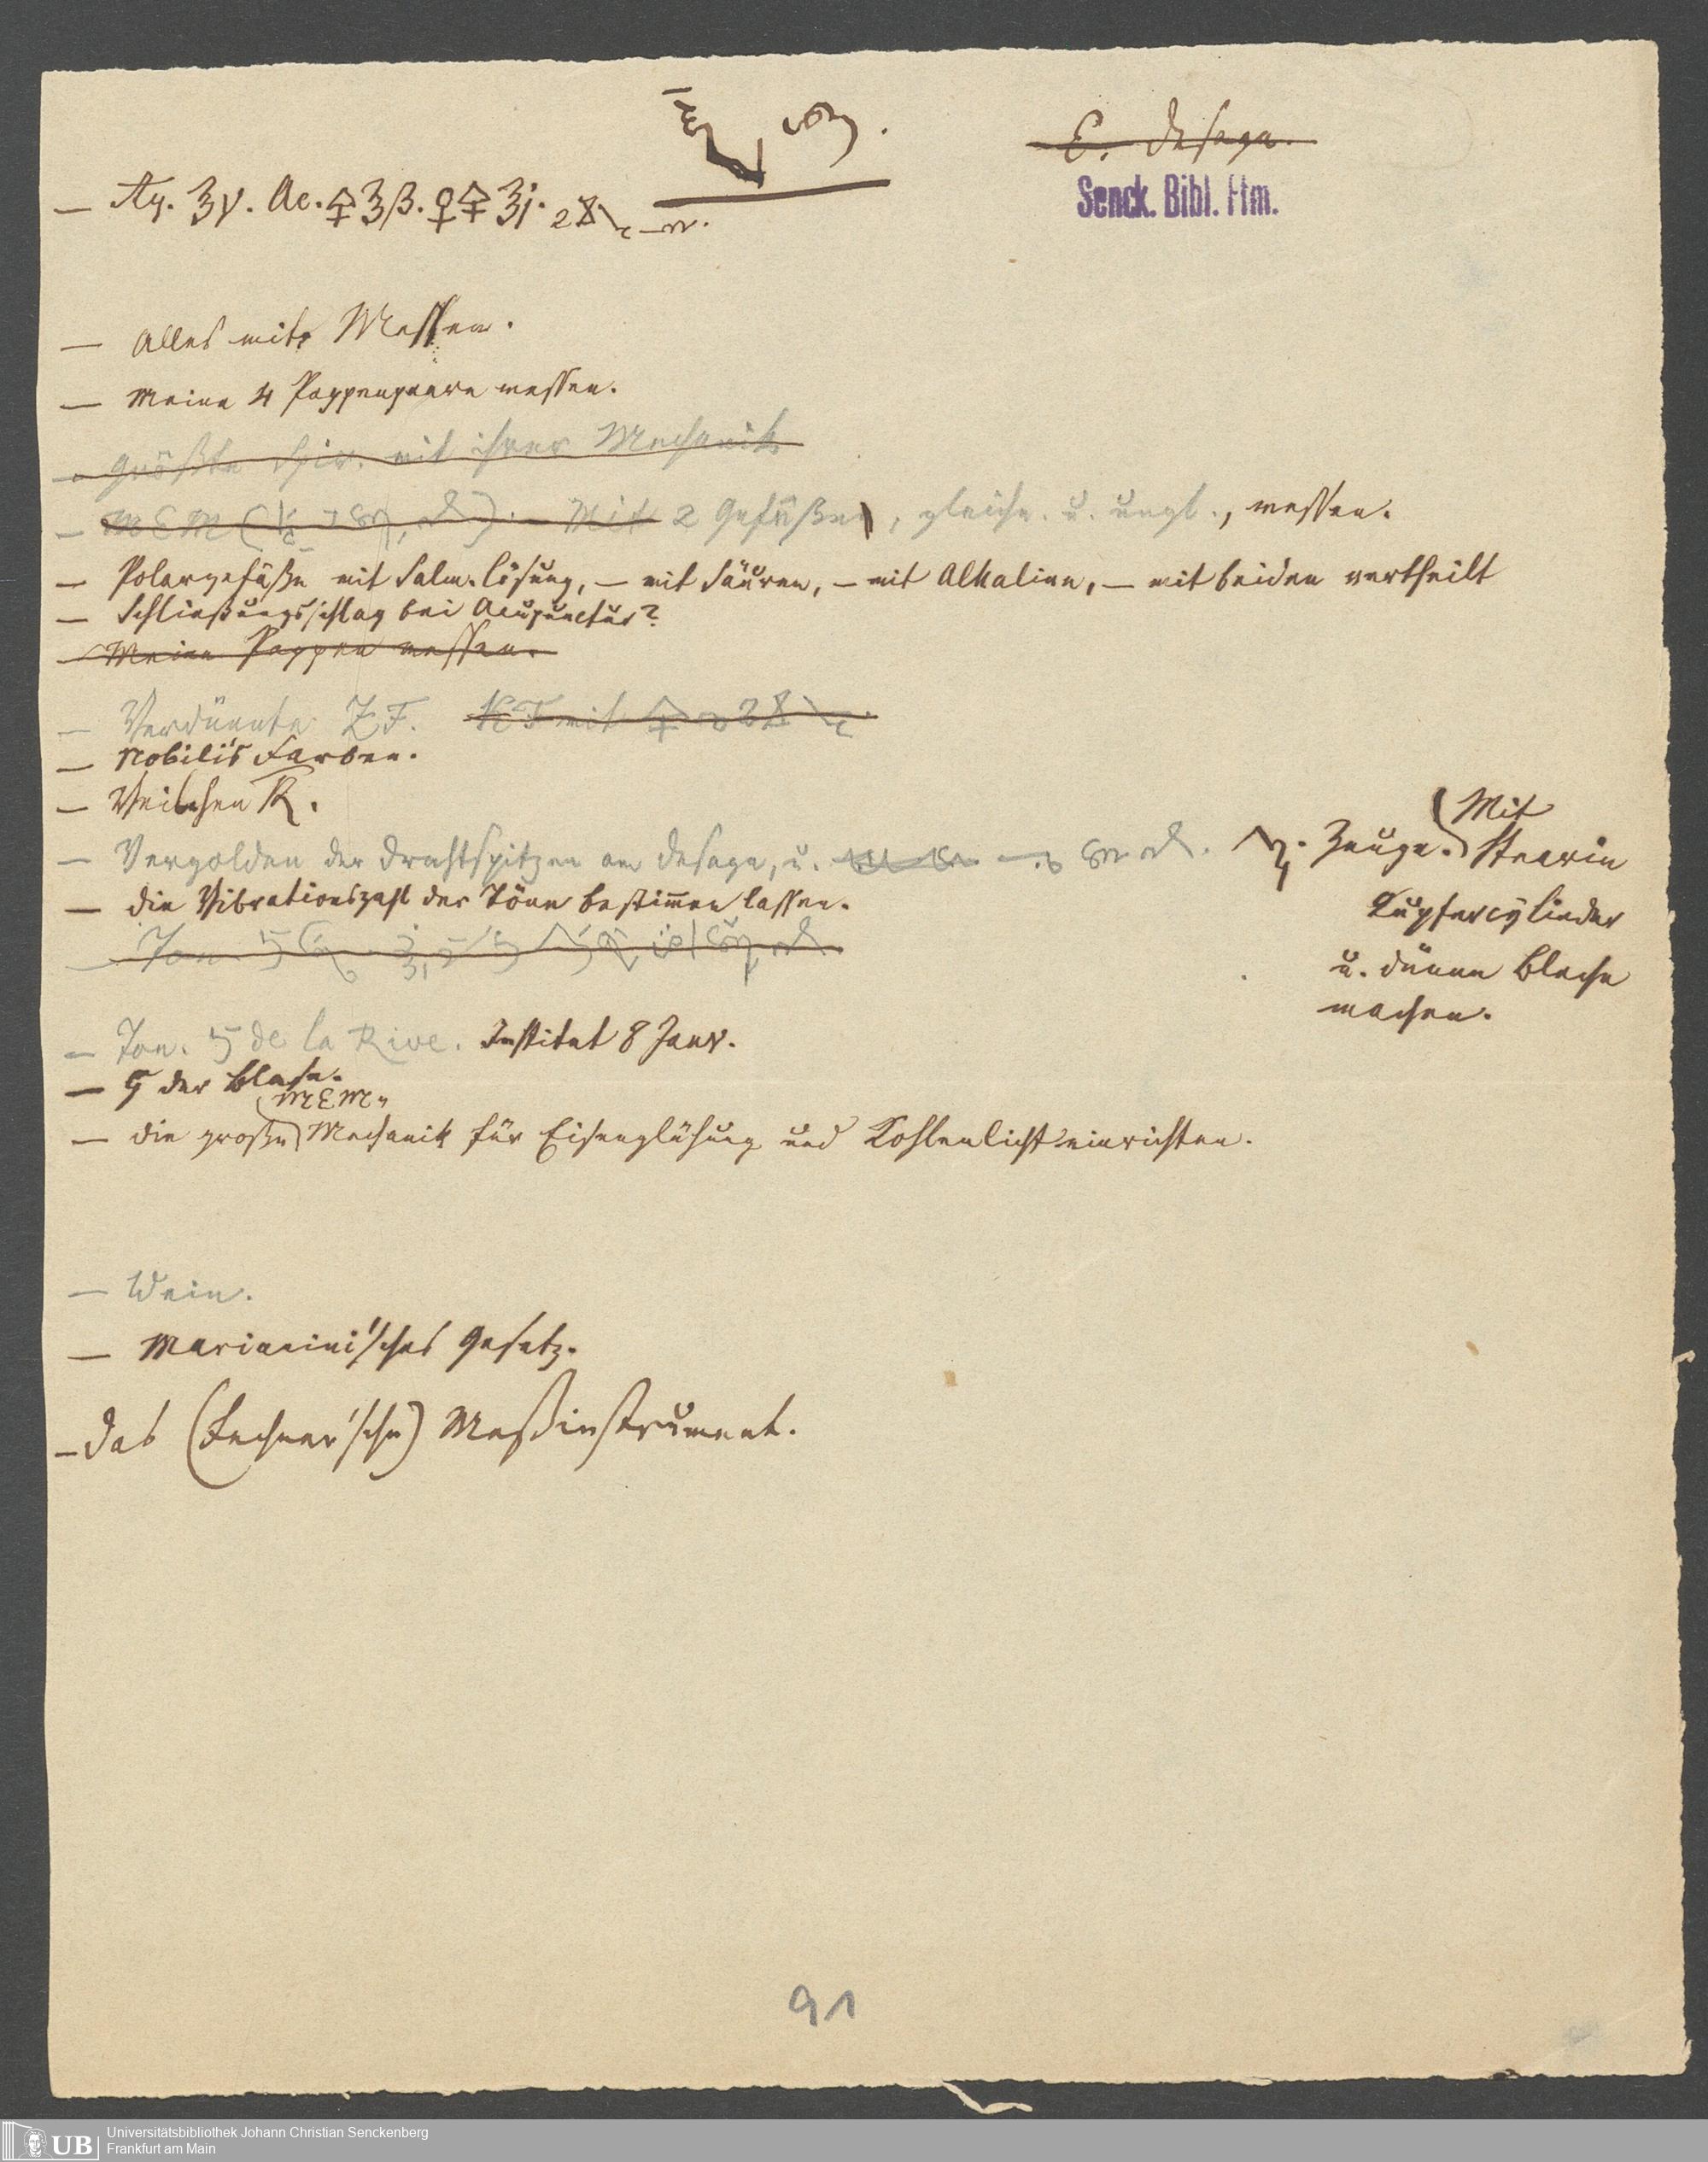 E. Desaga.
Senck. Bibl. Ffm.
— Aq. ʒv. Ac. 🜍 ʒβ. ♀🜍 ʒj.
— Alles mit Messen.
— Meine 4 Pappenpaare messen.
— Größte Spir. mit ihrer Mechanik
— MEM Mit 2 Gefäßen, gleich. u. ungl., messen.
— Polargefäße mit Salm.lösung, — mit Säuren, — mit Alkalien, — mit beiden vertheilt
— Schließungsschlag bei Acupunctur?
— Meine Pappen messen.
— Verdünnte ZF. KF mit
— Nobili's Farben.
— Veilchen R.
— Vergolden der Drahtspitzen am Desaga, u.
Zeuge. (Mit
Stearin
Kupfercylinder
u. dünne Bleche
machen.
— die Vibrationszahl der Töne bestimmen lassen.
— Ton
— Ton. de la Rive. Institut 8 Janv.
— der Blase.
MEM.
— die große Mechanik für Eisenglühung und Kohlenlicht einrichten.
— Wein.
— Marianini'sches Gesetz.
— das (Fechner'sche) Meßinstrument.
91
UB
Universitätsbibliothek Johann Christian Senckenberg
Frankfurt am Main